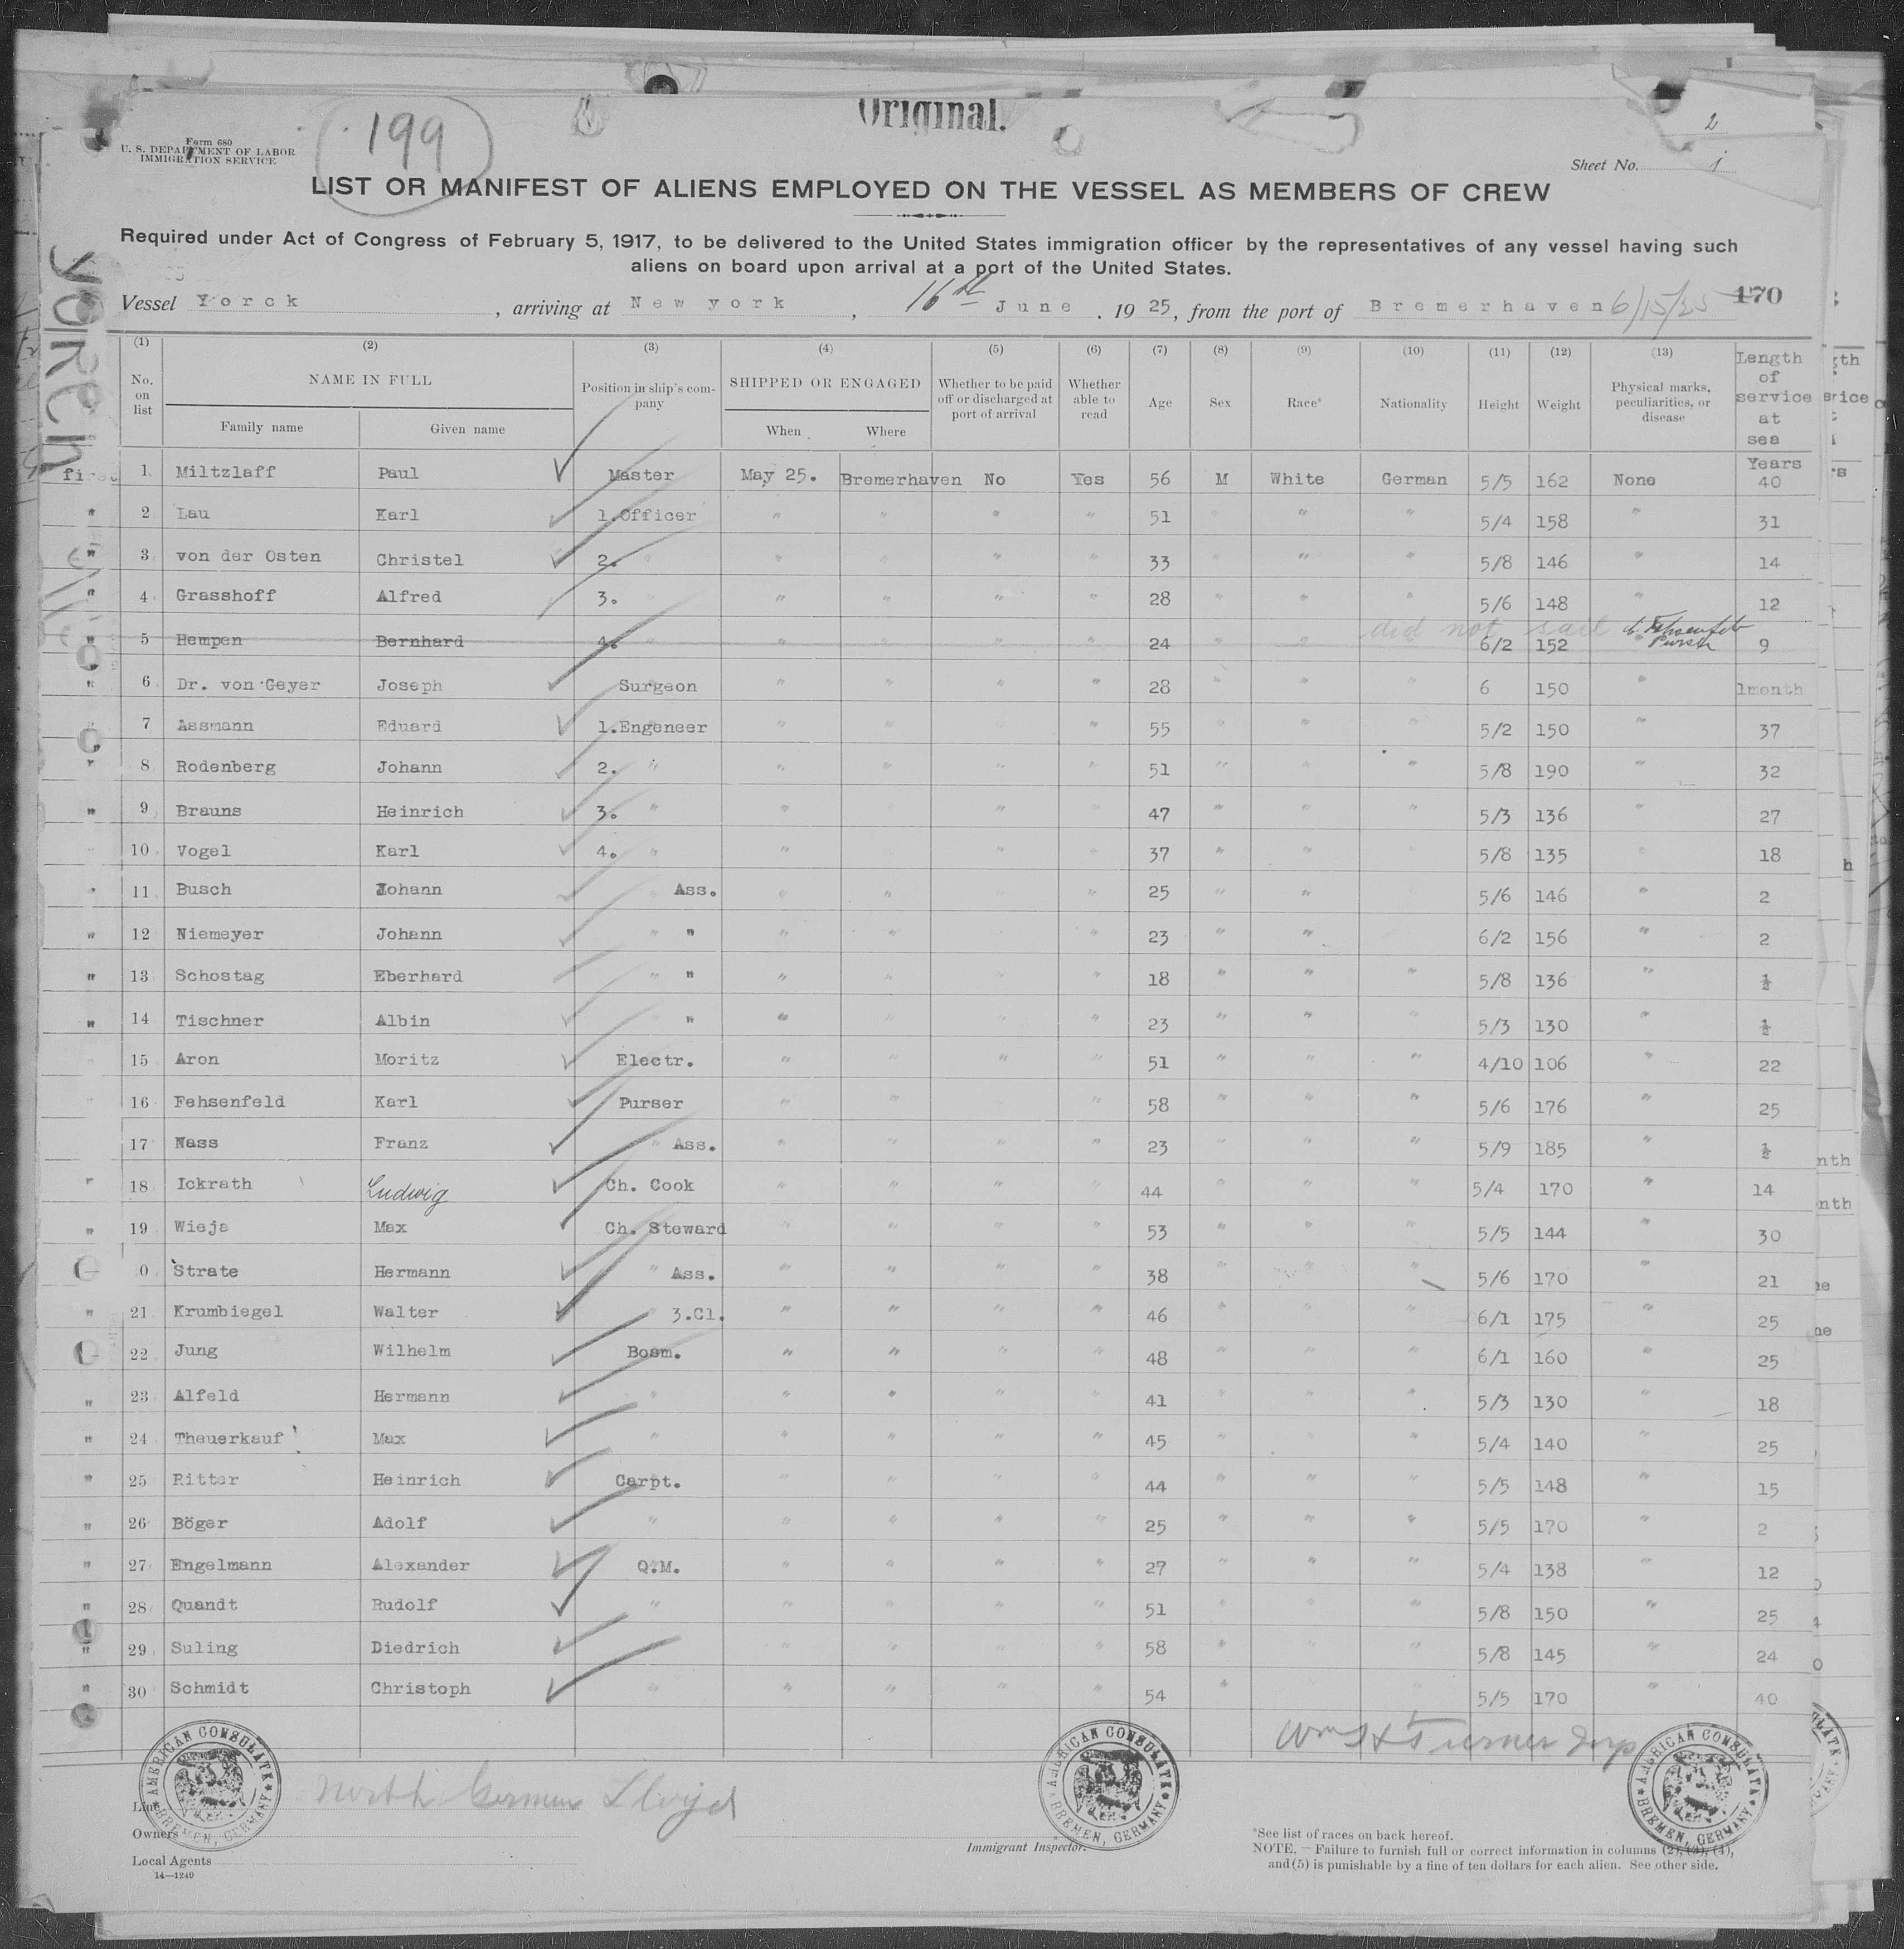 Original.
199
2
Form 680
U. S. DEPARTMENT OF LABOR
IMMIGRATION SERVICE
Sheet No. 1
LIST OR MANIFEST OF ALIENS EMPLOYED ON THE VESSEL AS MEMBERS OF CREW
Required under Act of Congress of February 5, 1917, to be delivered to the United States immigration officer by the representatives of any vessel having such
aliens on board upon arrival at a port of the United States.
Vessel Yorck, arriving at New york, 16th June, 1925, from the port of Bremerhaven 6/15/25 170
(1) (2) (3) (4) (5) (6) (7) (8) (9) (10) (11) (12) (13)
No. on list NAME IN FULL Family name Given name Position in ship's company SHIPPED OR ENGAGED When Where Whether to be paid off or discharged at port of arrival Whether able to read Age Sex Race* Nationality Height Weight Physical marks, peculiarities, or disease Length of service at sea
Years
1 Miltzlaff Paul Master May 25. Bremerhaven No Yes 56 M White German 5/5 162 None 40
" 2 Lau Karl 1.Officer " " " " 51 " " " 5/4 158 " 31
" 3 von der Osten Christel 2. " " " " " 33 " " " 5/8 146 " 14
" 4 Grasshoff Alfred 3. " " " " " 28 " " " 5/6 148 " 12
did not sail
" 5 Hempen Bernhard 4. " " " " " 24 " " 6/2 152 Purser 9
" 6 Dr. von Geyer Joseph Surgeon " " " " 28 " " " 6 150 " 1month
" 7 Assmann Eduard 1.Engeneer " " " " 55 " " " 5/2 150 " 37
" 8 Rodenberg Johann 2. " " " " " 51 " " " 5/8 190 " 32
" 9 Brauns Heinrich 3. " " " " " 47 " " " 5/3 136 " 27
10 Vogel Karl 4. " " " " " 37 " " " 5/8 135 " 18
" 11 Busch Johann " Ass. " " " " 25 " " " 5/6 146 " 2
" 12 Niemeyer Johann " " " " " " 23 " " " 6/2 156 " 2
" 13 Schostag Eberhard " " " " " " 18 " " " 5/8 136 " ½
" 14 Tischner Albin " " " " " " 23 " " " 5/3 130 " ½
" 15 Aron Moritz Electr. " " " " 51 " " " 4/10 106 " 22
" 16 Fehsenfeld Karl Purser " " " " 58 " " " 5/6 176 " 25
17 Nass Franz " Ass. " " " " 23 " " " 5/9 185 " ½
" 18 Ickrath Ludwig Ch. Cook " " " " 44 " " " 5/4 170 " 14
" 19 Wieja Max Ch. Steward " " " " 53 " " " 5/5 144 " 30
0 Strate Hermann " Ass. " " " " 38 " " " 5/6 170 " 21
" 21 Krumbiegel Walter " 3.Cl. " " " " 46 " " " 6/1 175 " 25
22 Jung Wilhelm Bosm. " " " " 48 " " " 6/1 160 " 25
" 23 Alfeld Hermann " " " " " 41 " " " 5/3 130 " 18
" 24 Theuerkauf Max " " " " " 45 " " " 5/4 140 " 25
" 25 Ritter Heinrich Carpt. " " " " 44 " " " 5/5 148 " 15
" 26 Böger Adolf " " " " " 25 " " " 5/5 170 " 2
" 27 Engelmann Alexander Q.M. " " " " 27 " " " 5/4 138 " 12
" 28 Quandt Rudolf " " " " " 51 " " " 5/8 150 " 25
" 29 Suling Diedrich " " " " " 58 " " " 5/8 145 " 24
" 30 Schmidt Christoph " " " " " 54 " " " 5/5 170 " 40
AMERICAN CONSULATE BREMEN, GERMANY
AMERICAN CONSULATE BREMEN, GERMANY
AMERICAN CONSULATE BREMEN, GERMANY
Turner Insp
Line North German Lloyd
Owners
Local Agents
14—1240
Immigrant Inspector.
*See list of races on back hereof.
NOTE. — Failure to furnish full or correct information in columns (2), (3), (4),
and (5) is punishable by a fine of ten dollars for each alien. See other side.